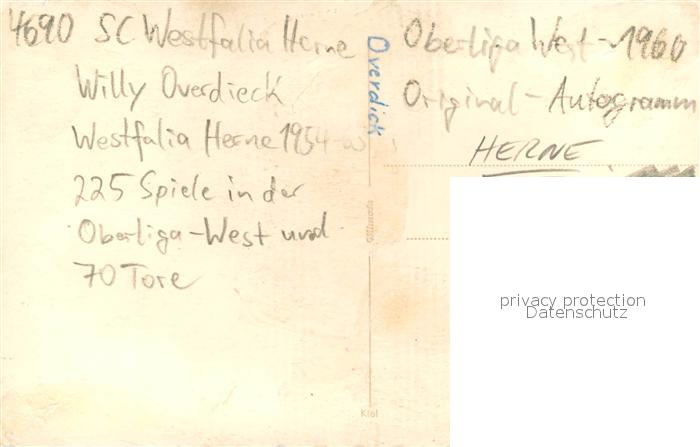 4690 SC Westfalia Herne
Willy Overdieck
Westfalia Herne 1954-
225 Spiele in der
Oberliga-West und
70 Tore
Overdick
Oberliga West - 1960
Original - Autogramm
HERNE
Kiel
privacy protection
Datenschutz